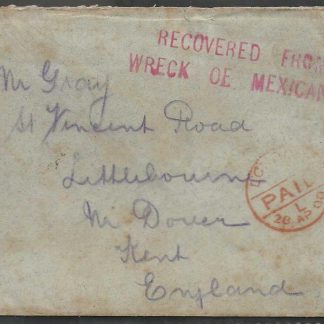 RECOVERED FROM
WRECK OF MEXICAN
Mr Gray
St Vincent Road
Littlebourne
Nr Dover
Kent
England
PAID
L
28 AP 00